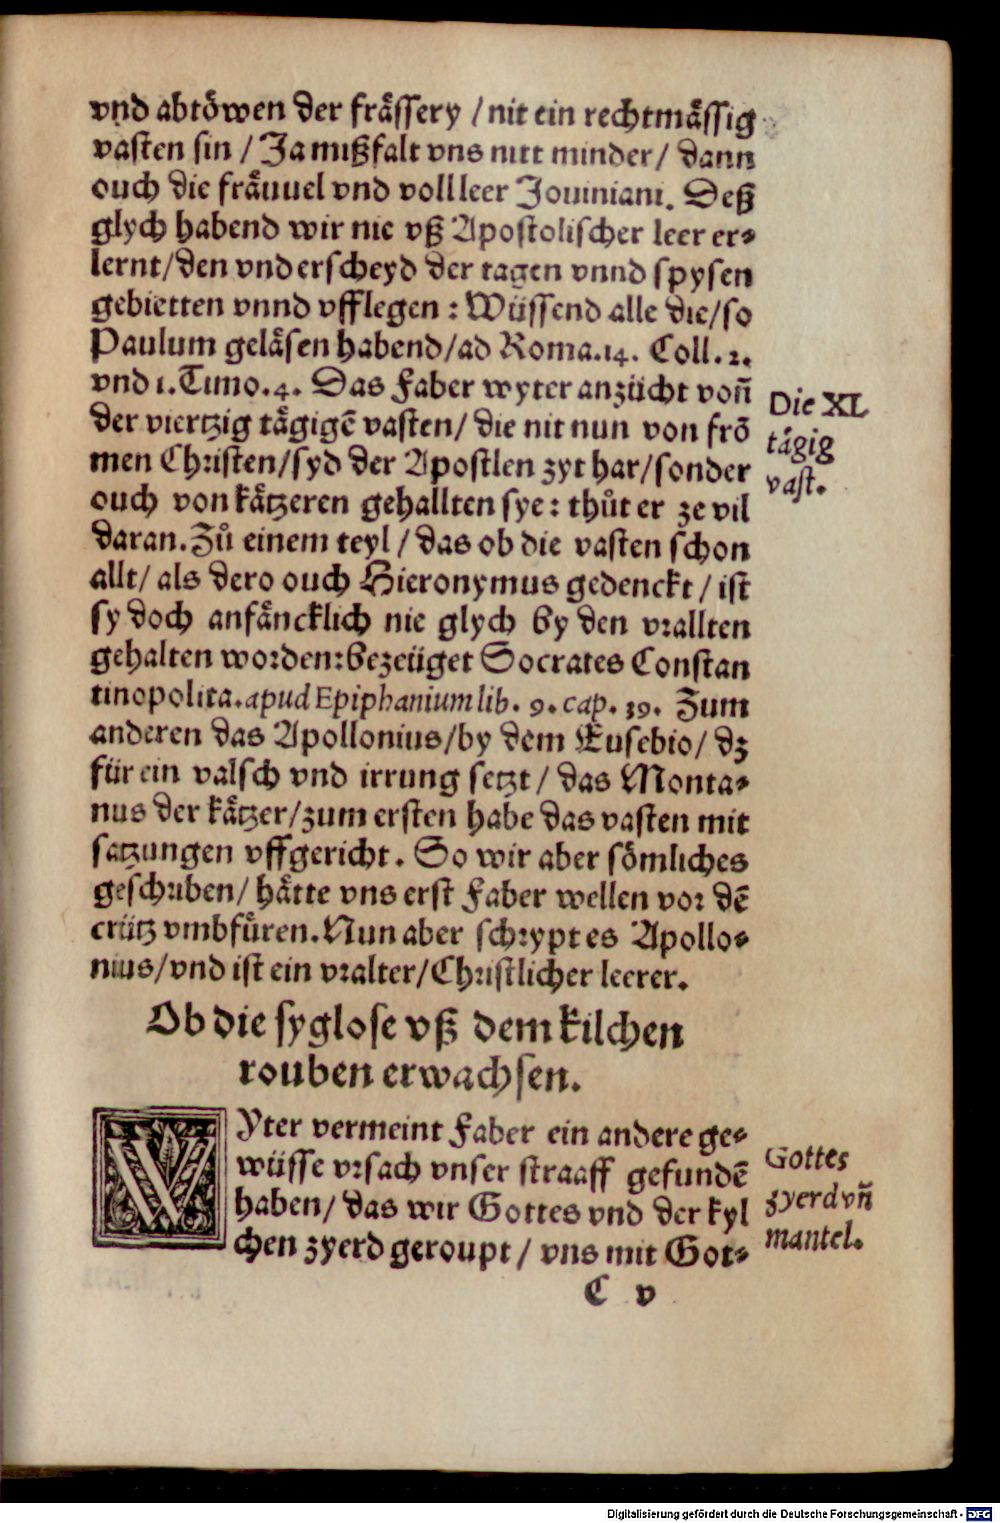 vnd abtoͤwen der fraͤssery / nit ein rechtmaͤssig
vasten sin / Ja mißfalt vns nitt minder / dann
ouch die fraͤuuel vnd voll leer Jouiniani. Deß
glych habend wir nie vß Apostolischer leer er⸗
lernt / den vnderscheyd der tagen vnnd spysen
gebietten vnnd vfflegen : Wüssend alle die / so
Paulum gelaͤsen habend / ad Roma. 14. Coll. 2.
vnd 1. Timo. 4. Das Faber wyter anzücht voñ
der viertzig taͤgigē vasten / die nit nun von frō
men Christen / syd der Apostlen zyt har / sonder
ouch von kaͤtzeren gehallten sye : thuͦt er ze vil
daran. Zuͦ einem teyl / das ob die vasten schon
allt / als dero ouch Hieronymus gedenckt / ist
sy doch anfaͤncklich nie glych by den vrallten
gehalten worden : bezeüget Socrates Constan
tinopolita. apud Epiphanium lib. 9. cap. 39. Zum
anderen das Apollonius / by dem Eusebio / dz
für ein valsch vnd irrung setzt / das Monta⸗
nus der kaͤtzer / zum ersten habe das vasten mit
satzungen vffgericht. So wir aber soͤmliches
geschriben / haͤtte vns erst Faber wellen vor dē
crütz vmbfuͤren. Nun aber schrypt es Apollo⸗
nius / vnd ist ein vralter / Christlicher leerer.
Die XL
taͤgig
vast.
Ob die syglose vß dem kilchen
rouben erwachsen.
WYter vermeint Faber ein andere ge⸗
wüsse vrsach vnser straaff gefundē
haben / das wir Gottes vnd der kyl
chen zyerd geroupt / vns mit Got⸗
Gottes
zyerd vñ
mantel.
C v
Digitalisierung gefördert durch die Deutsche Forschungsgemeinschaft - DFG